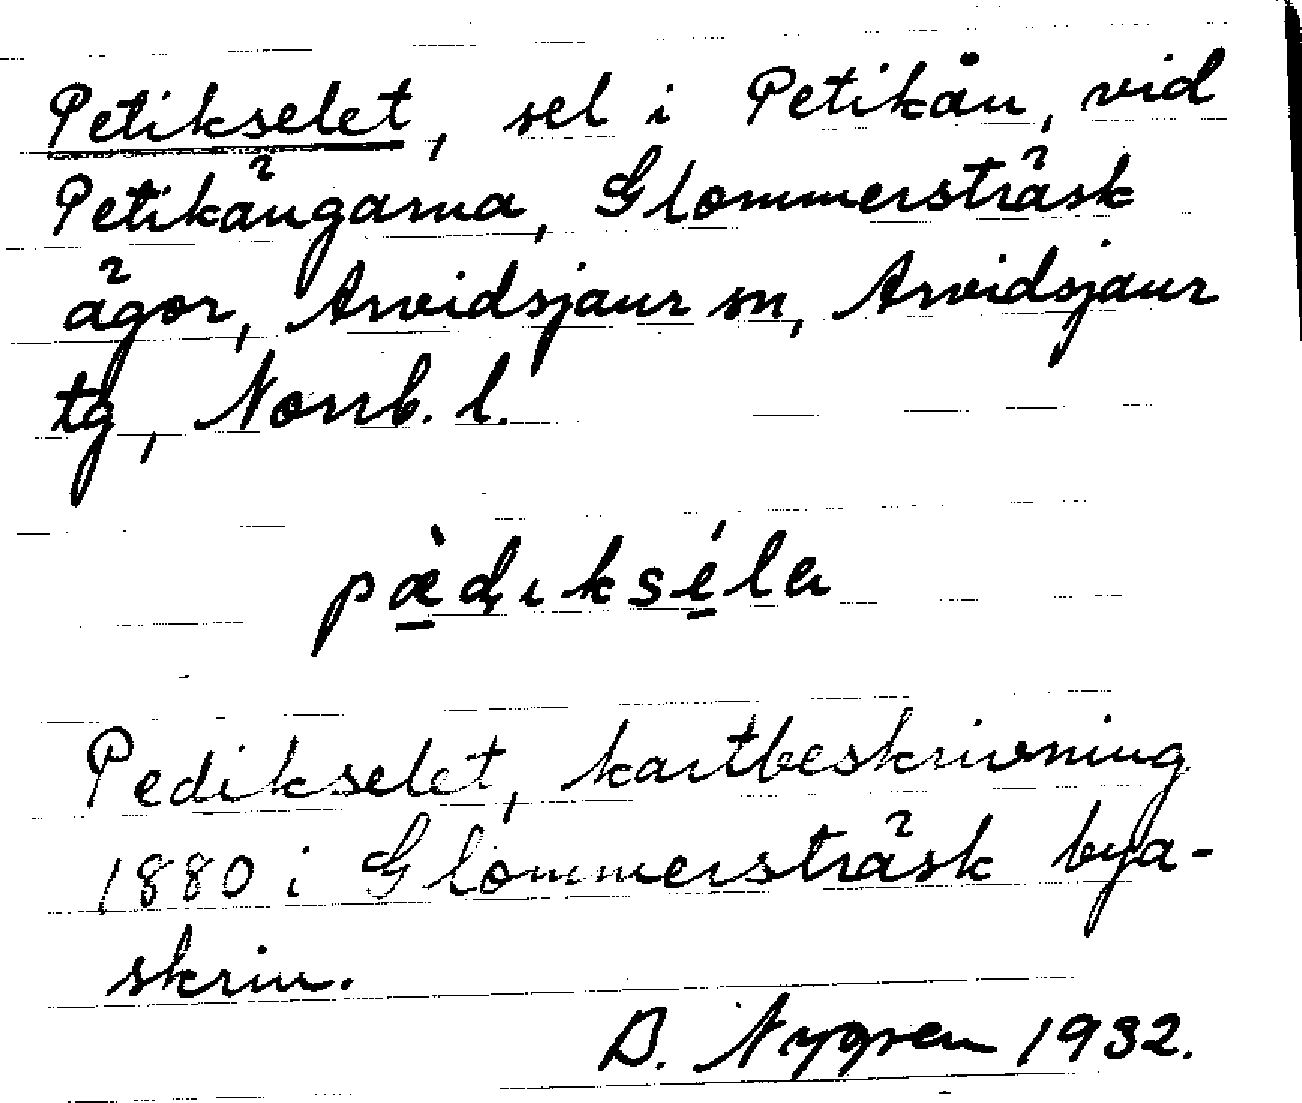 Petikselet, sel i Petikån, vid
Petikängarna, Glommersträsk
ägor, Arvidsjaur sn, Arvidsjaur
tg, Norrb. l.
pædɩkséla
Pedikselet, kartbeskrivning
1880 i Glommersträsk bya-
skrin.
B. Nygren 1932.